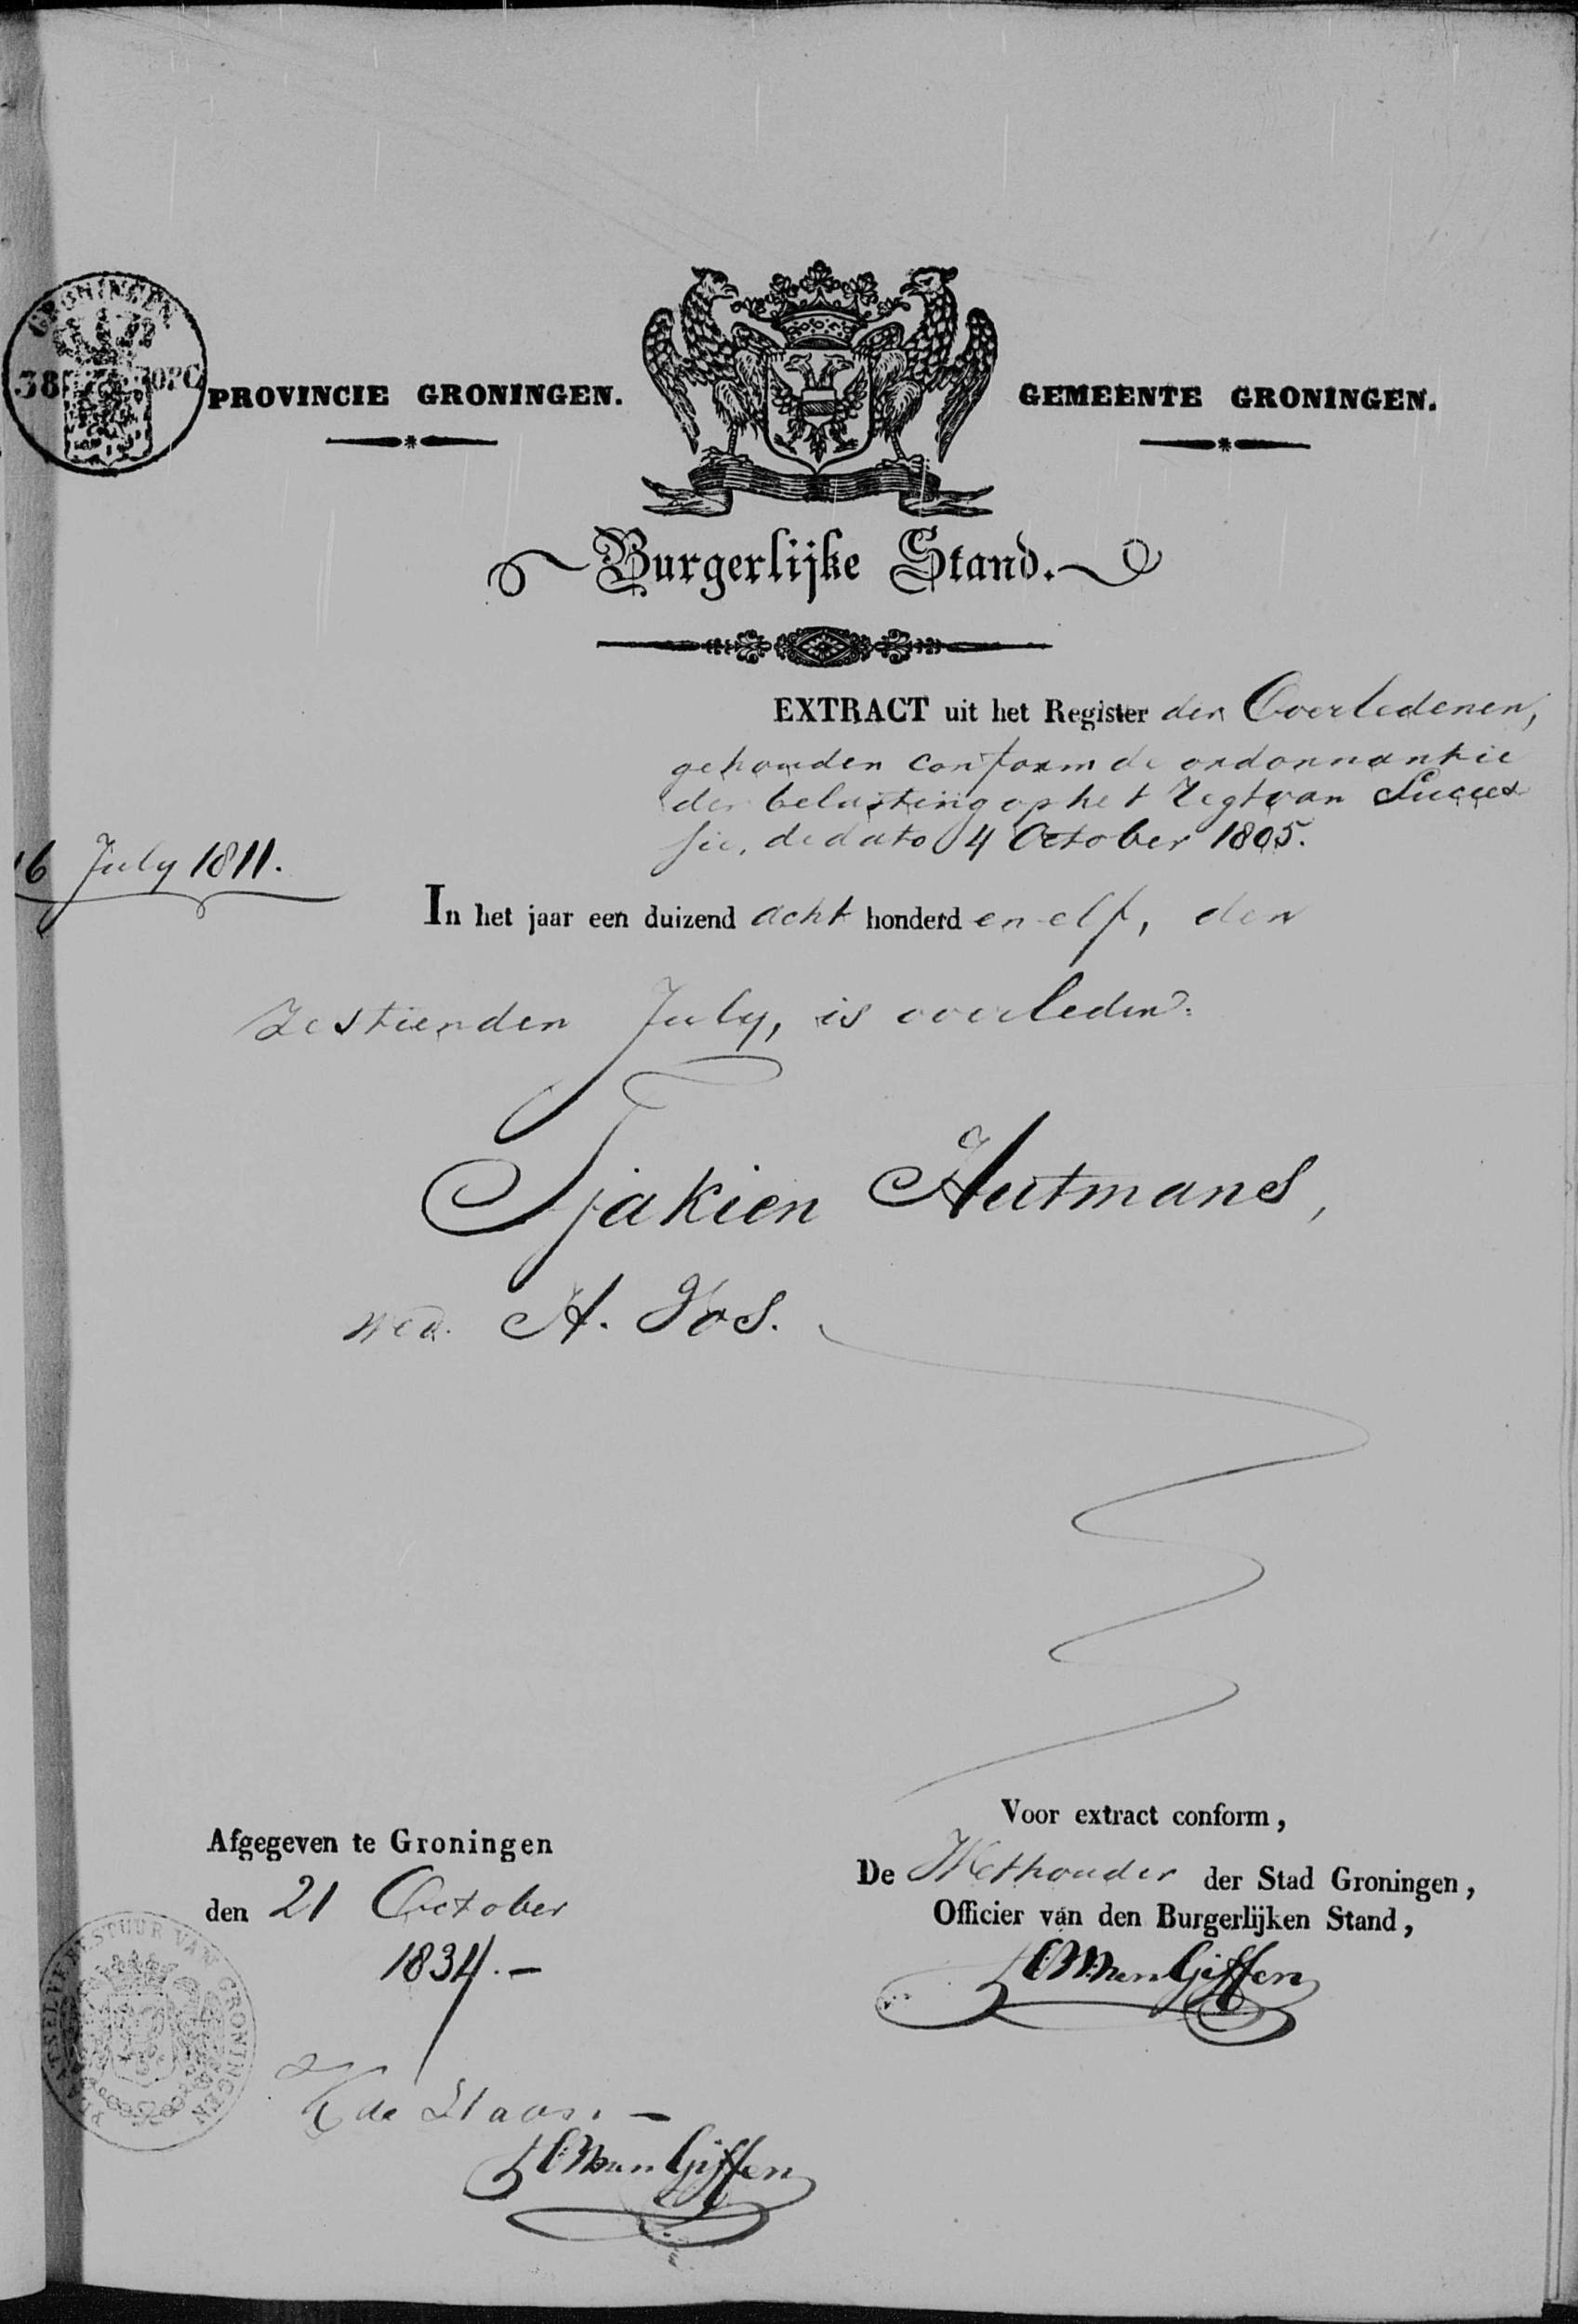 GRONINGEN
38 OPC
PROVINCIE GRONINGEN.
GEMEENTE GRONINGEN.
Burgerlijke Stand.
EXTRACT uit het Register der Overledenen,
gehouden conform de ordonnantie
der belasting op het Regt van Succes
sie, de dato 4 October 1805.
16 July 1811.
In het jaar een duizend acht honderd en elf, den
Zestienden July, is overleden:
Tjakien Hutmans,
wed. H. Vos.
Voor extract conform,
Afgegeven te Groningen
De Wethouder der Stad Groningen,
den 21 October
Officier van den Burgerlijken Stand,
1834.-
van Giffen
PLAATSELYK BESTUUR VAN GRONINGEN
de
van Giffen